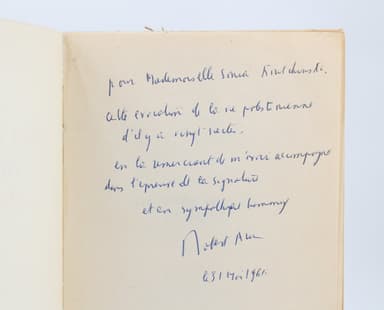 pour Mademoiselle Sonia
cette évocation de la vie palestinienne
d'il y a vingt siècles.
en la remerciant de m'avoir accompagné
dans l'épreuve de la signature
et en sympathique hommage
Robert Aron
le 31 Mai 1961.